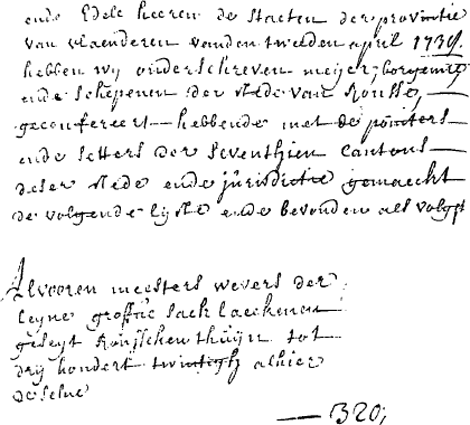 ende Edele heeren de Staeten der provintie
van vlaenderen vanden tweeden april 1738.
hebben wij onderschreven meijer, borgemre
ende schepenen der stede van Rousse,
geconfereert hebbende met de pointers
ende setters der seventhien cantons
deser stede ende jurisdictie gemaeckt
de volgende lijste ende bevonden als volgt
Alvooren meesters wevers der
leyne groffue sack laeckenen
geseyt Ronsschen thuijn tot
drij hondert twintigh alhier
deselve
320,